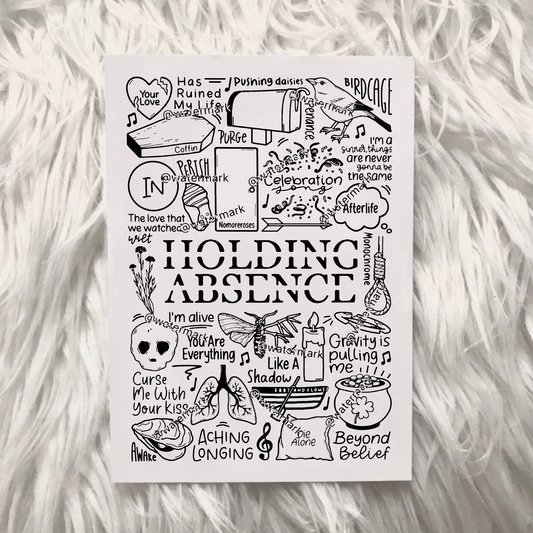 Your
Love
Has
Ruined
My Life
Pushing daisies
Penance
BIRDCAGE
@watermark
Coffin
PURGE
I'm a
sinner, things
are never
gonna be
the same
IN
PERISH
@watermark
Nomoreroses
@watermark
Celebration
@watermark
Afterlife
The love that
we watched
wilt
@watermark
Monochrome
HOLDING
ABSENCE
I'm alive
@watermark
You Are
Everything
@watermark
Like A
Shadow
Gravity is
pulling
me
Curse
Me With
Your Kiss
EBBS AND FLOWS
@watermark
AWAKE
ACHING
LONGING
Die
Alone
@watermark
Beyond
Belief